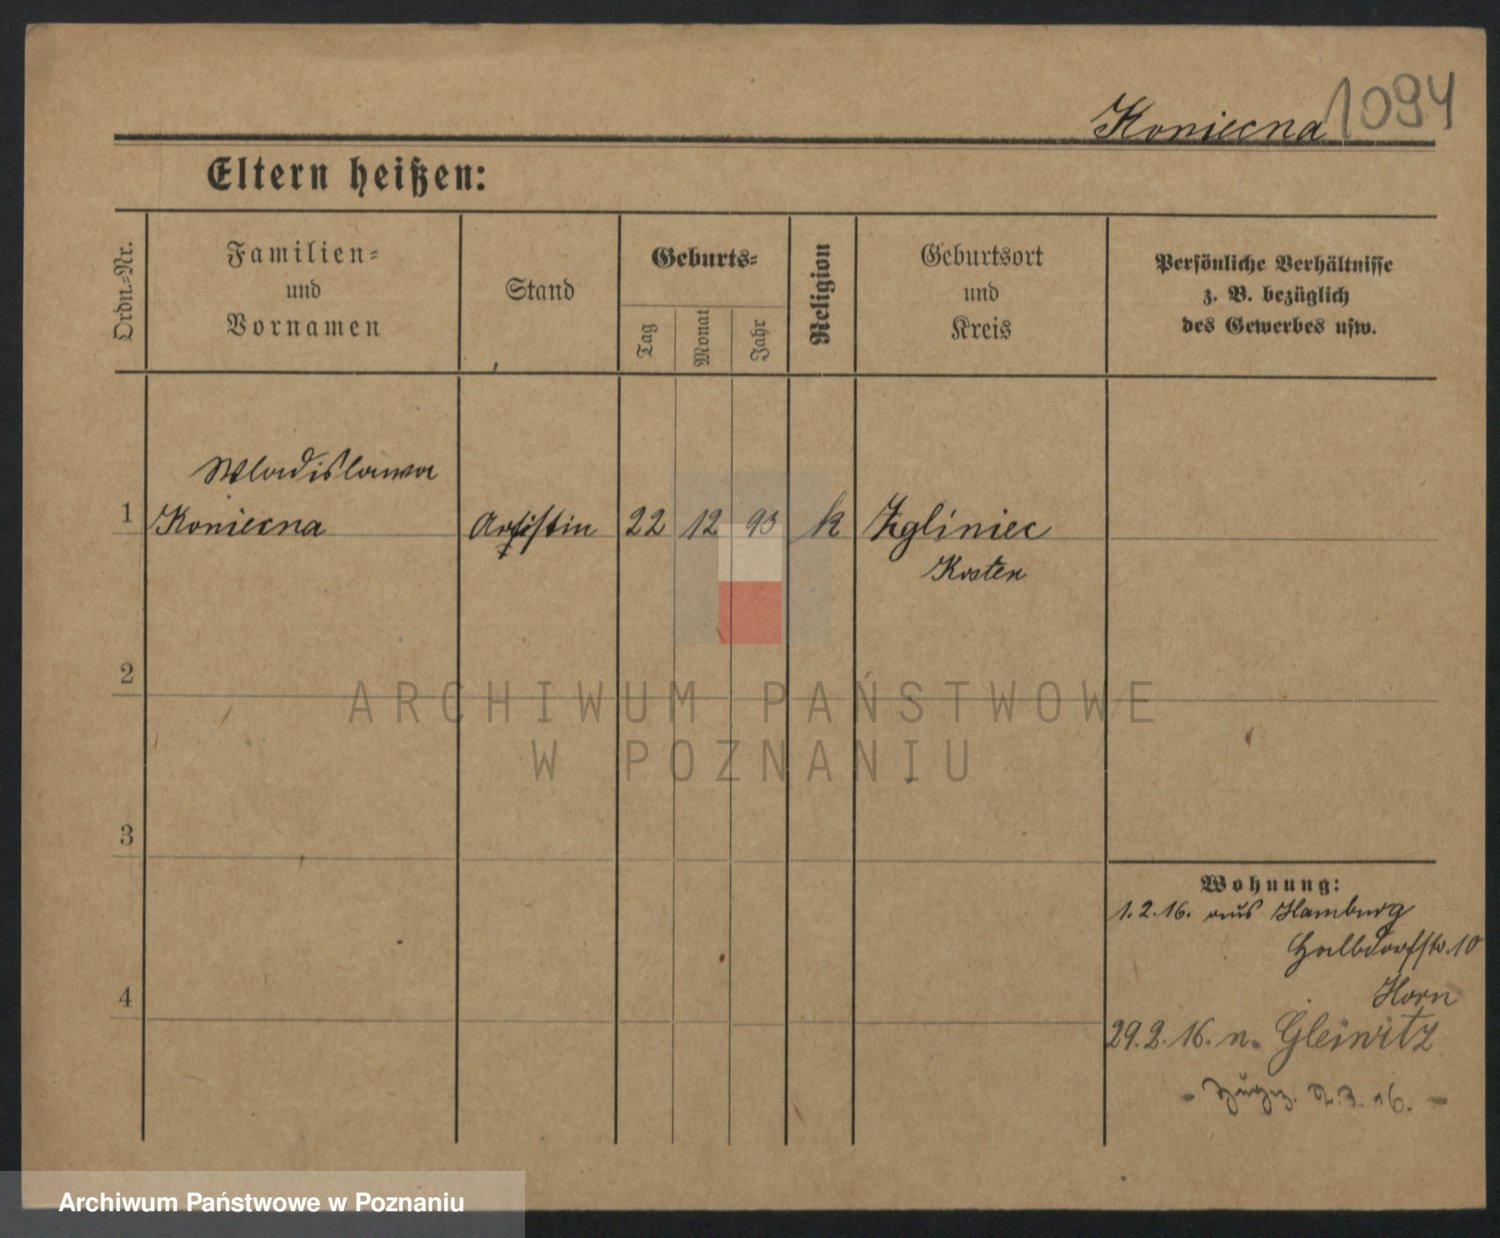 Koniecna 1094
Eltern heißen:
Ordn.-Nr.
Familien-
und
Vornamen
Stand
Geburts-
Tag
Monat
Jahr
Religion
Geburtsort
und
Kreis
Persönliche Verhältnisse
z. B. bezüglich
des Gewerbes usw.
Wladislawa
1 Koniecna Artistin 22 12 93 k Zgliniec
Kosten
2
ARCHIWUM PAŃSTWOWE
W POZNANIU
3
Wohnung:
1.2.16. aus Hamburg
Halbdorfstr. 10
Horn
4
29.2.16. n. Gleiwitz
- Zugez. 2.3.16. -
Archiwum Państwowe w Poznaniu